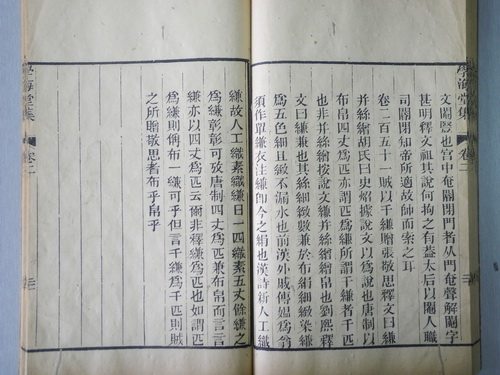 學海堂集 卷二
文閹豎也宮中奄閽閉門者从門奄聲解閹字
甚明釋文祖其說何拘之有蓋太后以閹人職
司閽閉知帝所適故帥而索之耳
卷二百五十一賊以千縑贈張敬思釋文曰縑
并絲繒胡氏曰史炤據說文以為說也唐制以
布帛四丈為匹亦謂匹為縑所謂千縑者千匹
也非并絲繒按說文縑并絲繒繒帛也劉熙釋
文曰縑兼也其絲細緻數兼於布絹細緻染縑
為五色細且緻不漏水也前漢外戚傳媼為翁
須作單縑衣注縑卽今之絹也漢詩新人工織
縑故人工織素織縑日一匹織素五丈餘縑之
為縑彰彰可攷唐制四丈為匹兼布帛而言言
縑亦以四丈為匹云爾非釋縑為匹也如謂匹
為縑則偁布一縑可乎但言千縑為千匹則賊
之所贈敬思者布乎帛乎
學海堂集 卷二